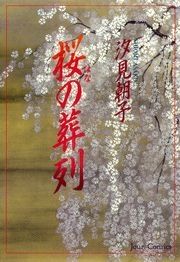 汐見朝子
桜の葬列
Jour Comics